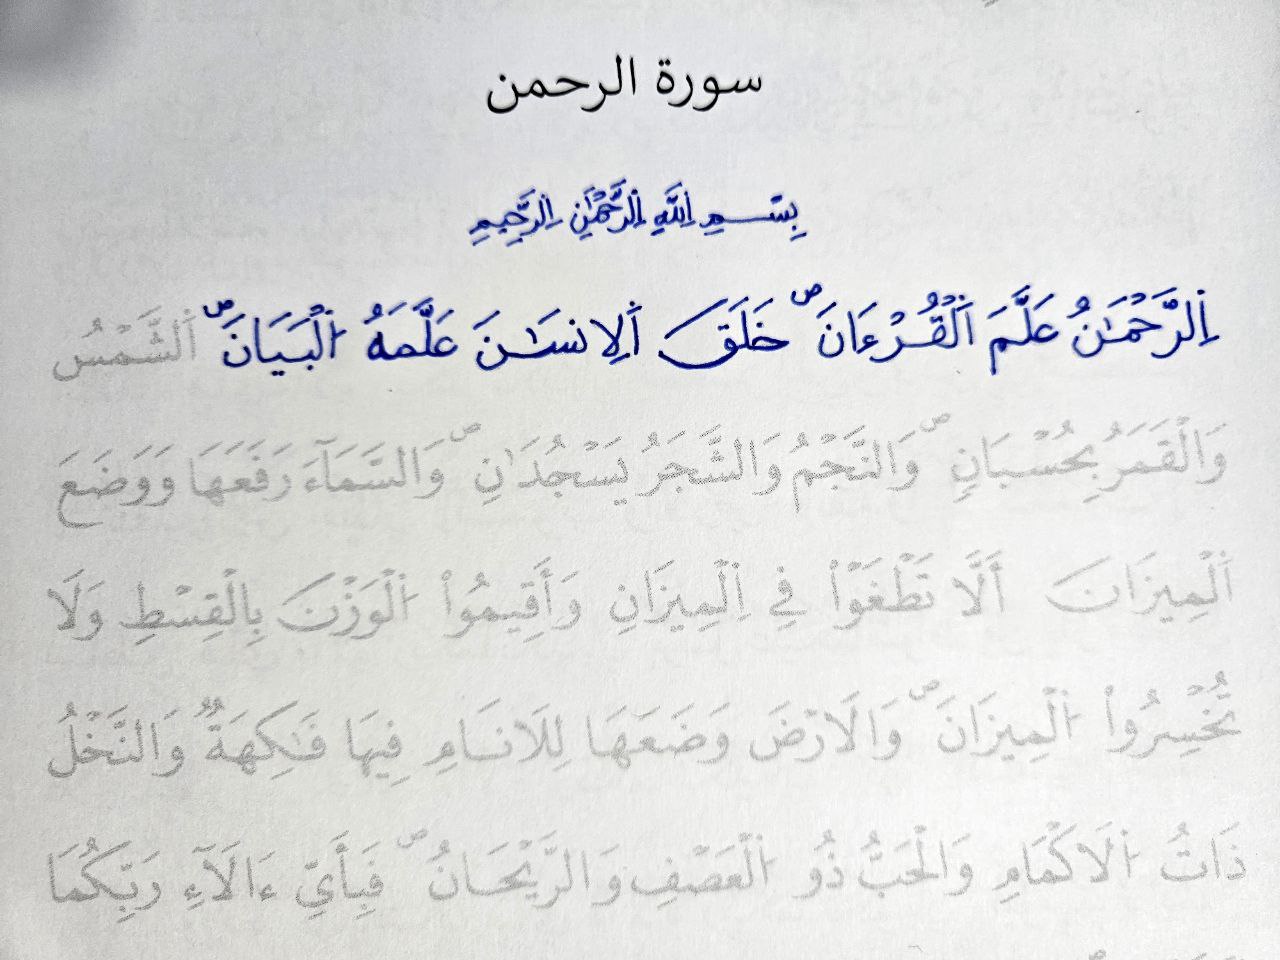 سورة الرحمن
بِسْــمِ اِ۬للَّهِ اِ۬لرَّحْمَٰنِ اِ۬لرَّحِيمِ
اِ۬لرَّحْمَٰنُ عَلَّمَ اَ۬لْقُرْءَانَۖ خَلَقَ اَ۬لِانسَٰنَ عَلَّمَهُ اُ۬لْبَيَانَۖ اَ۬لشَّمْسُ
وَالْقَمَرُ بِحُسْبَانٖۖ وَالنَّجْمُ وَالشَّجَرُ يَسْجُدَٰنِۖ وَالسَّمَآءَ رَفَعَهَا وَوَضَعَ
اَ۬لْمِيزَانَ أَلَّا تَطْغَوْاْ فِي اِ۬لْمِيزَانِ وَأَقِيمُواْ اُ۬لْوَزْنَ بِالْقِسْطِ وَلَا
تُخْسِرُواْ اُ۬لْمِيزَانَۖ وَالَارْضَ وَضَعَهَا لِلَانَامِ فِيهَا فَٰكِهَةٞ وَالنَّخْلُ
ذَاتُ اُ۬لَاكْمَامِ وَالْحَبُّ ذُو اُ۬لْعَصْفِ وَالرَّيْحَانُۖ فَبِأَيِّ ءَالَآءِ رَبِّكُمَا